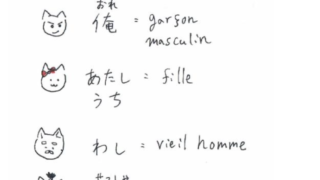 おれ
俺 = garçon
masculin
あたし = fille
うち
わし = vieil homme